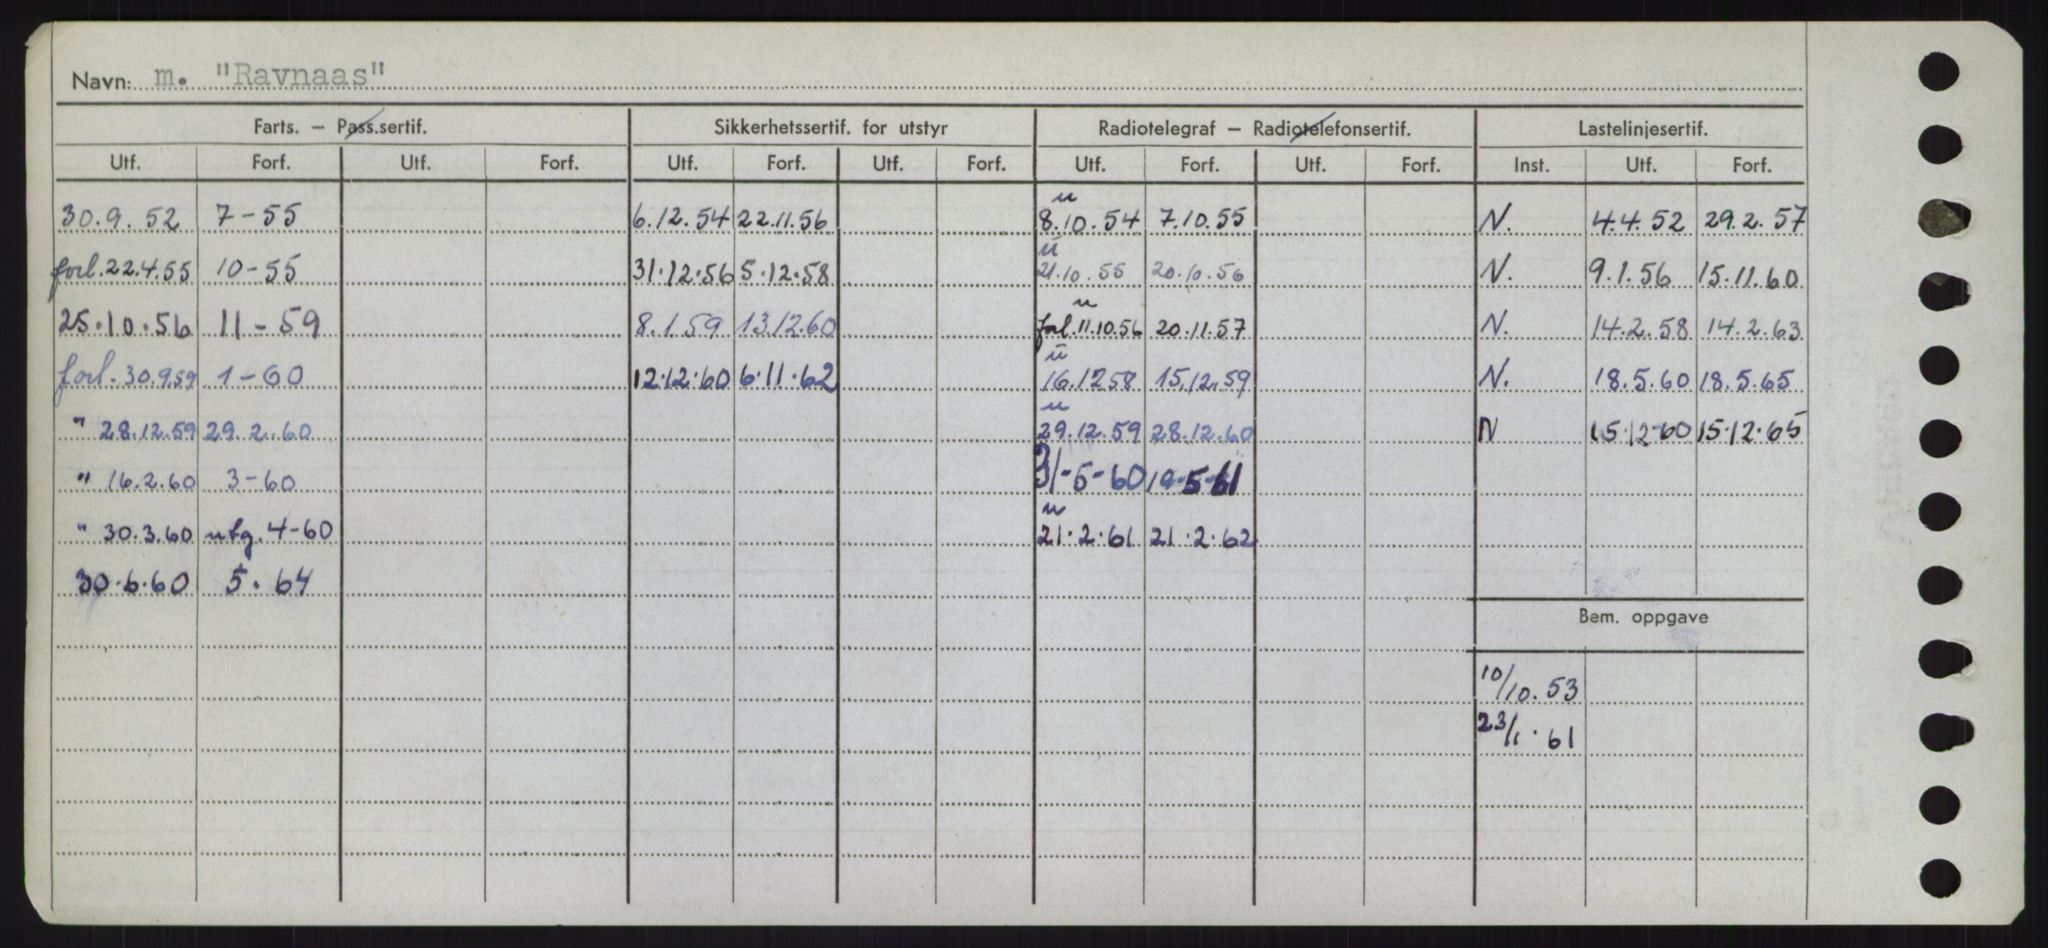 Navn: m. "Ravnaas"
Farts. – Pass.sertif. Sikkerhetssertif. for utstyr Radiotelegraf – Radiotelefonsertif. Lastelinjesertif.
Utf. Forf. Utf. Forf. Utf. Forf. Utf. Forf. Utf. Forf. Utf. Forf. Inst. Utf. Forf.
30.9.52 7-55 6.12.54 22.11.56 u 8.10.54 7.10.55 N. 4.4.52 29.2.57
forl.22.4.55 10-55 31.12.56 5.12.58 u 21.10.55 20.10.56 N. 9.1.56 15.11.60
25.10.56 11-59 8.1.59 13.12.60 u forl.11.10.56 20.11.57 N. 14.2.58 14.2.63
forl.30.9.59 1-60 12.12.60 6.11.62 u 16.12.58 15.12.59 N. 18.5.60 18.5.65
" 28.12.59 29.2.60 u 29.12.59 28.12.60 N 15.12-60 15.12.65
" 16.2.60 3-60 31-5-60 19-5-61
" 30.3.60 utg. 4-60 u 21.2.61 21.2.62
30.6.60 5.64
Bem. oppgave
10/10.53
23/1.61